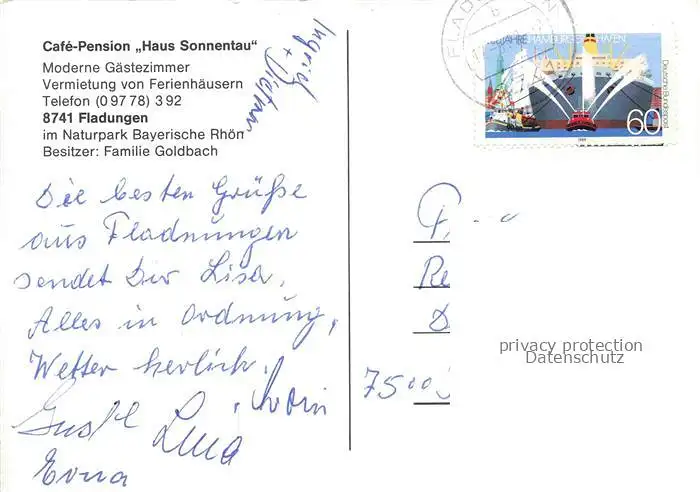 Café-Pension „Haus Sonnentau"
Moderne Gästezimmer
Vermietung von Ferienhäusern
Telefon (0 97 78) 3 92
8741 Fladungen
im Naturpark Bayerische Rhön
Besitzer: Familie Goldbach
Ingrid
+ Dietmar
Die besten Grüße
aus Fladnungen
sendet Dir Lisa,
Alles in Ordnung,
Wetter herlich.
Gustl Lina
Erna
FLAD
JAHRE HAMBURGER HAFEN
Deutsche Bundespost
60
1989
Re
D
7500
privacy protection
Datenschutz